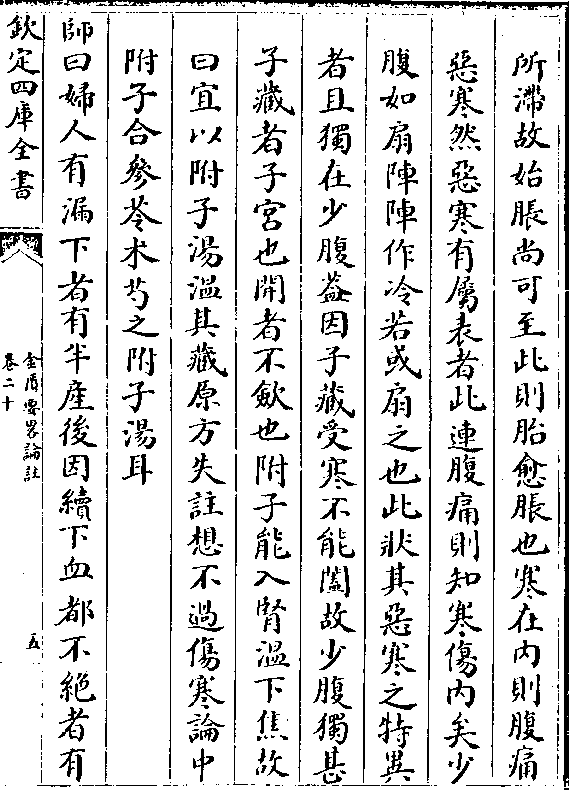 所滯故始脹尚可至此則胎愈脹也寒在内則腹痛
惡寒然惡寒有屬表者此連腹痛則知寒傷内矣少
腹如扇陣陣作冷若或扇之也此狀其惡寒之特異
者且獨在少腹葢因子藏受寒不能闔故少腹獨甚
子藏者子宫也開者不歛也附子能入腎溫下焦故
曰宜以附子湯溫其藏原方失註想不過傷寒論中
附子合參苓术芍之附子湯耳
師曰婦人有漏下者有半產後因續下血都不絶者有
欽定四庫全書
金匱要畧論註
卷二十
五